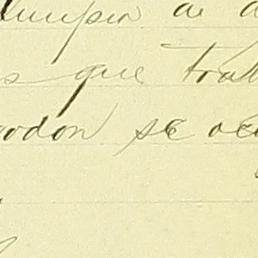 limpia a a
s que trat
godon se oc